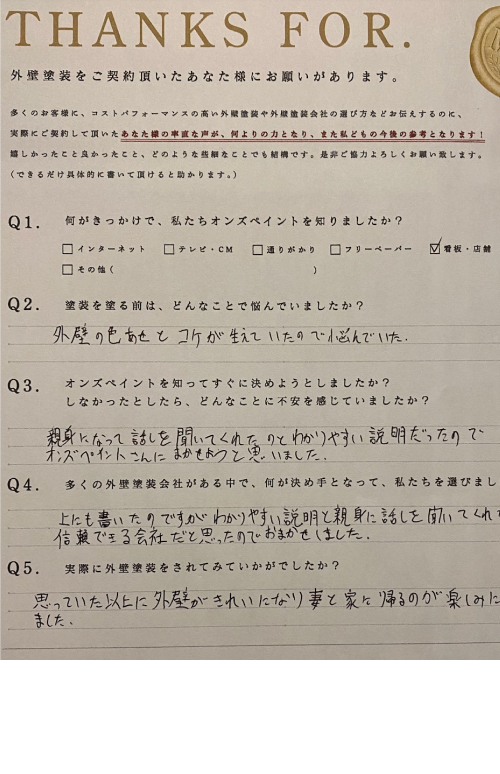 THANKS FOR.
外壁塗装をご契約頂いたあなた様にお願いがあります。
多くのお客様に、コストパフォーマンスの高い外壁塗装や外壁塗装会社の選び方などお伝えするのに、
実際にご契約して頂いたあなた様の率直な声が、何よりの力となり、また私どもの今後の参考となります!
嬉しかったこと良かったこと、どのような些細なことでも結構です。是非ご協力よろしくお願い致します。
(できるだけ具体的に書いて頂けると助かります。)
Q1. 何がきっかけで、私たちオンズペイントを知りましたか?
□インターネット □テレビ・CM □通りがかり □フリーペーパー ☑看板・店舗
□その他( )
Q2. 塗装を塗る前は、どんなことで悩んでいましたか?
外壁の色あせとコケが生えていたので悩んでいた.
Q3. オンズペイントを知ってすぐに決めようとしましたか?
しなかったとしたら、どんなことに不安を感じていましたか?
親身になって話しを聞いてくれたのとわかりやすい説明だったので
オンズペイントさんにまかせようと思いました.
Q4. 多くの外壁塗装会社がある中で、何が決め手となって、私たちを選びまし
上にも書いたのですがわかりやすい説明と親身に話しを聞いてくれ
信頼できる会社だと思ったのでおまかせしました.
Q5. 実際に外壁塗装をされてみていかがでしたか?
思っていた以上に外壁がきれいになり妻と家に帰るのが楽しみに
ました.